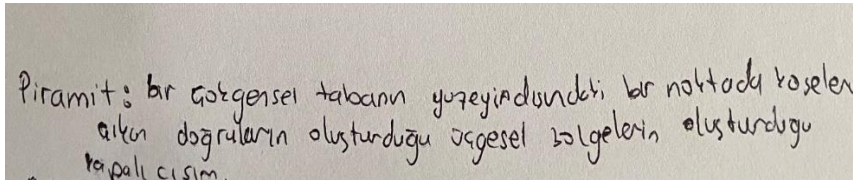 Piramit: bir Çokgensel tabanın yüzeyindışındaki bir noktada köşeler
çıkan doğruların oluşturduğu üçgesel bölgelerin oluşturduğu
kapalı cisim.